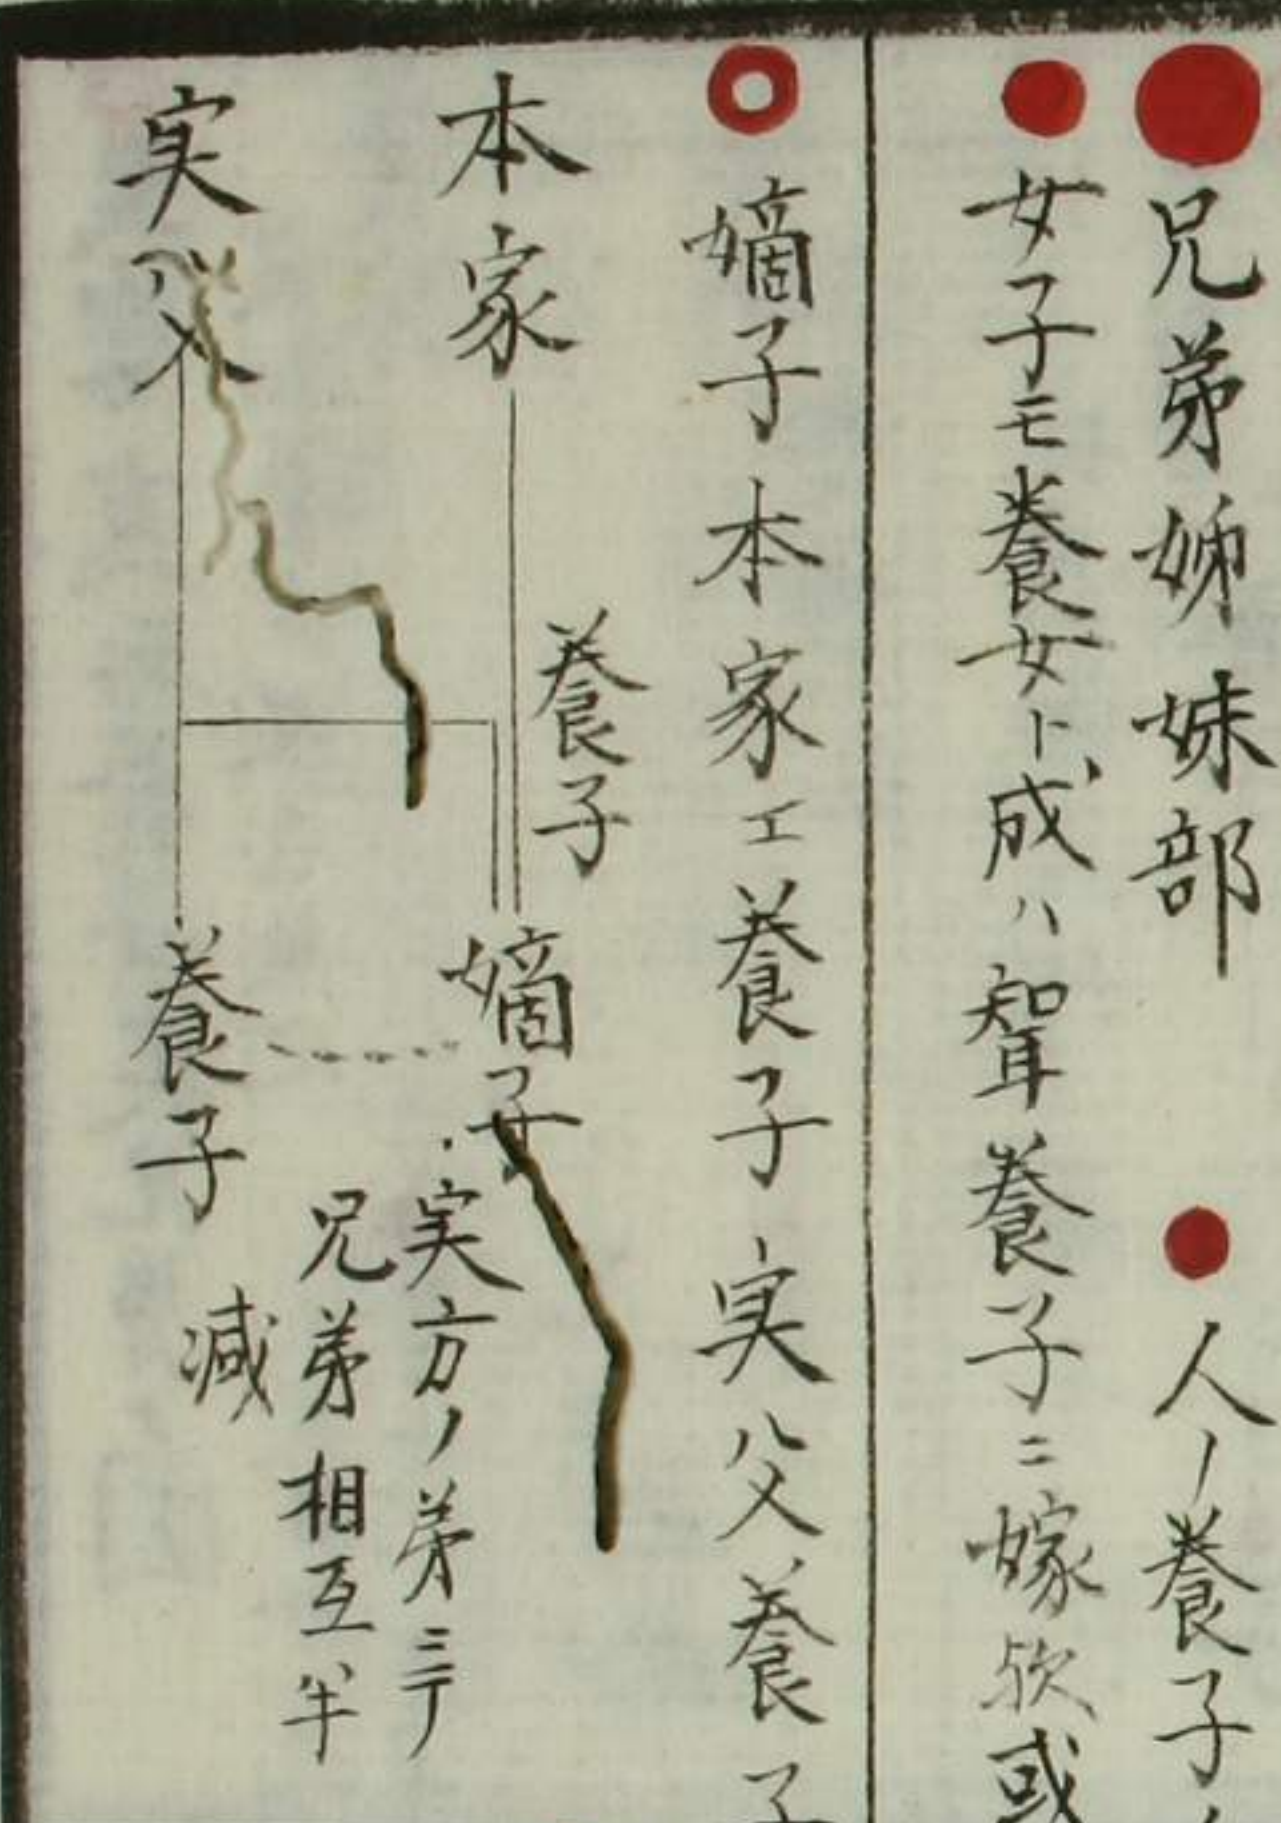 兄弟姉妹部 人ノ養子
女子モ養女ト成ハ聟養子ニ嫁欤或
嫡子本家エ養子実父養子
本家
養子
嫡子
実方ノ弟ニテ
兄弟相互半
減
実父
養子